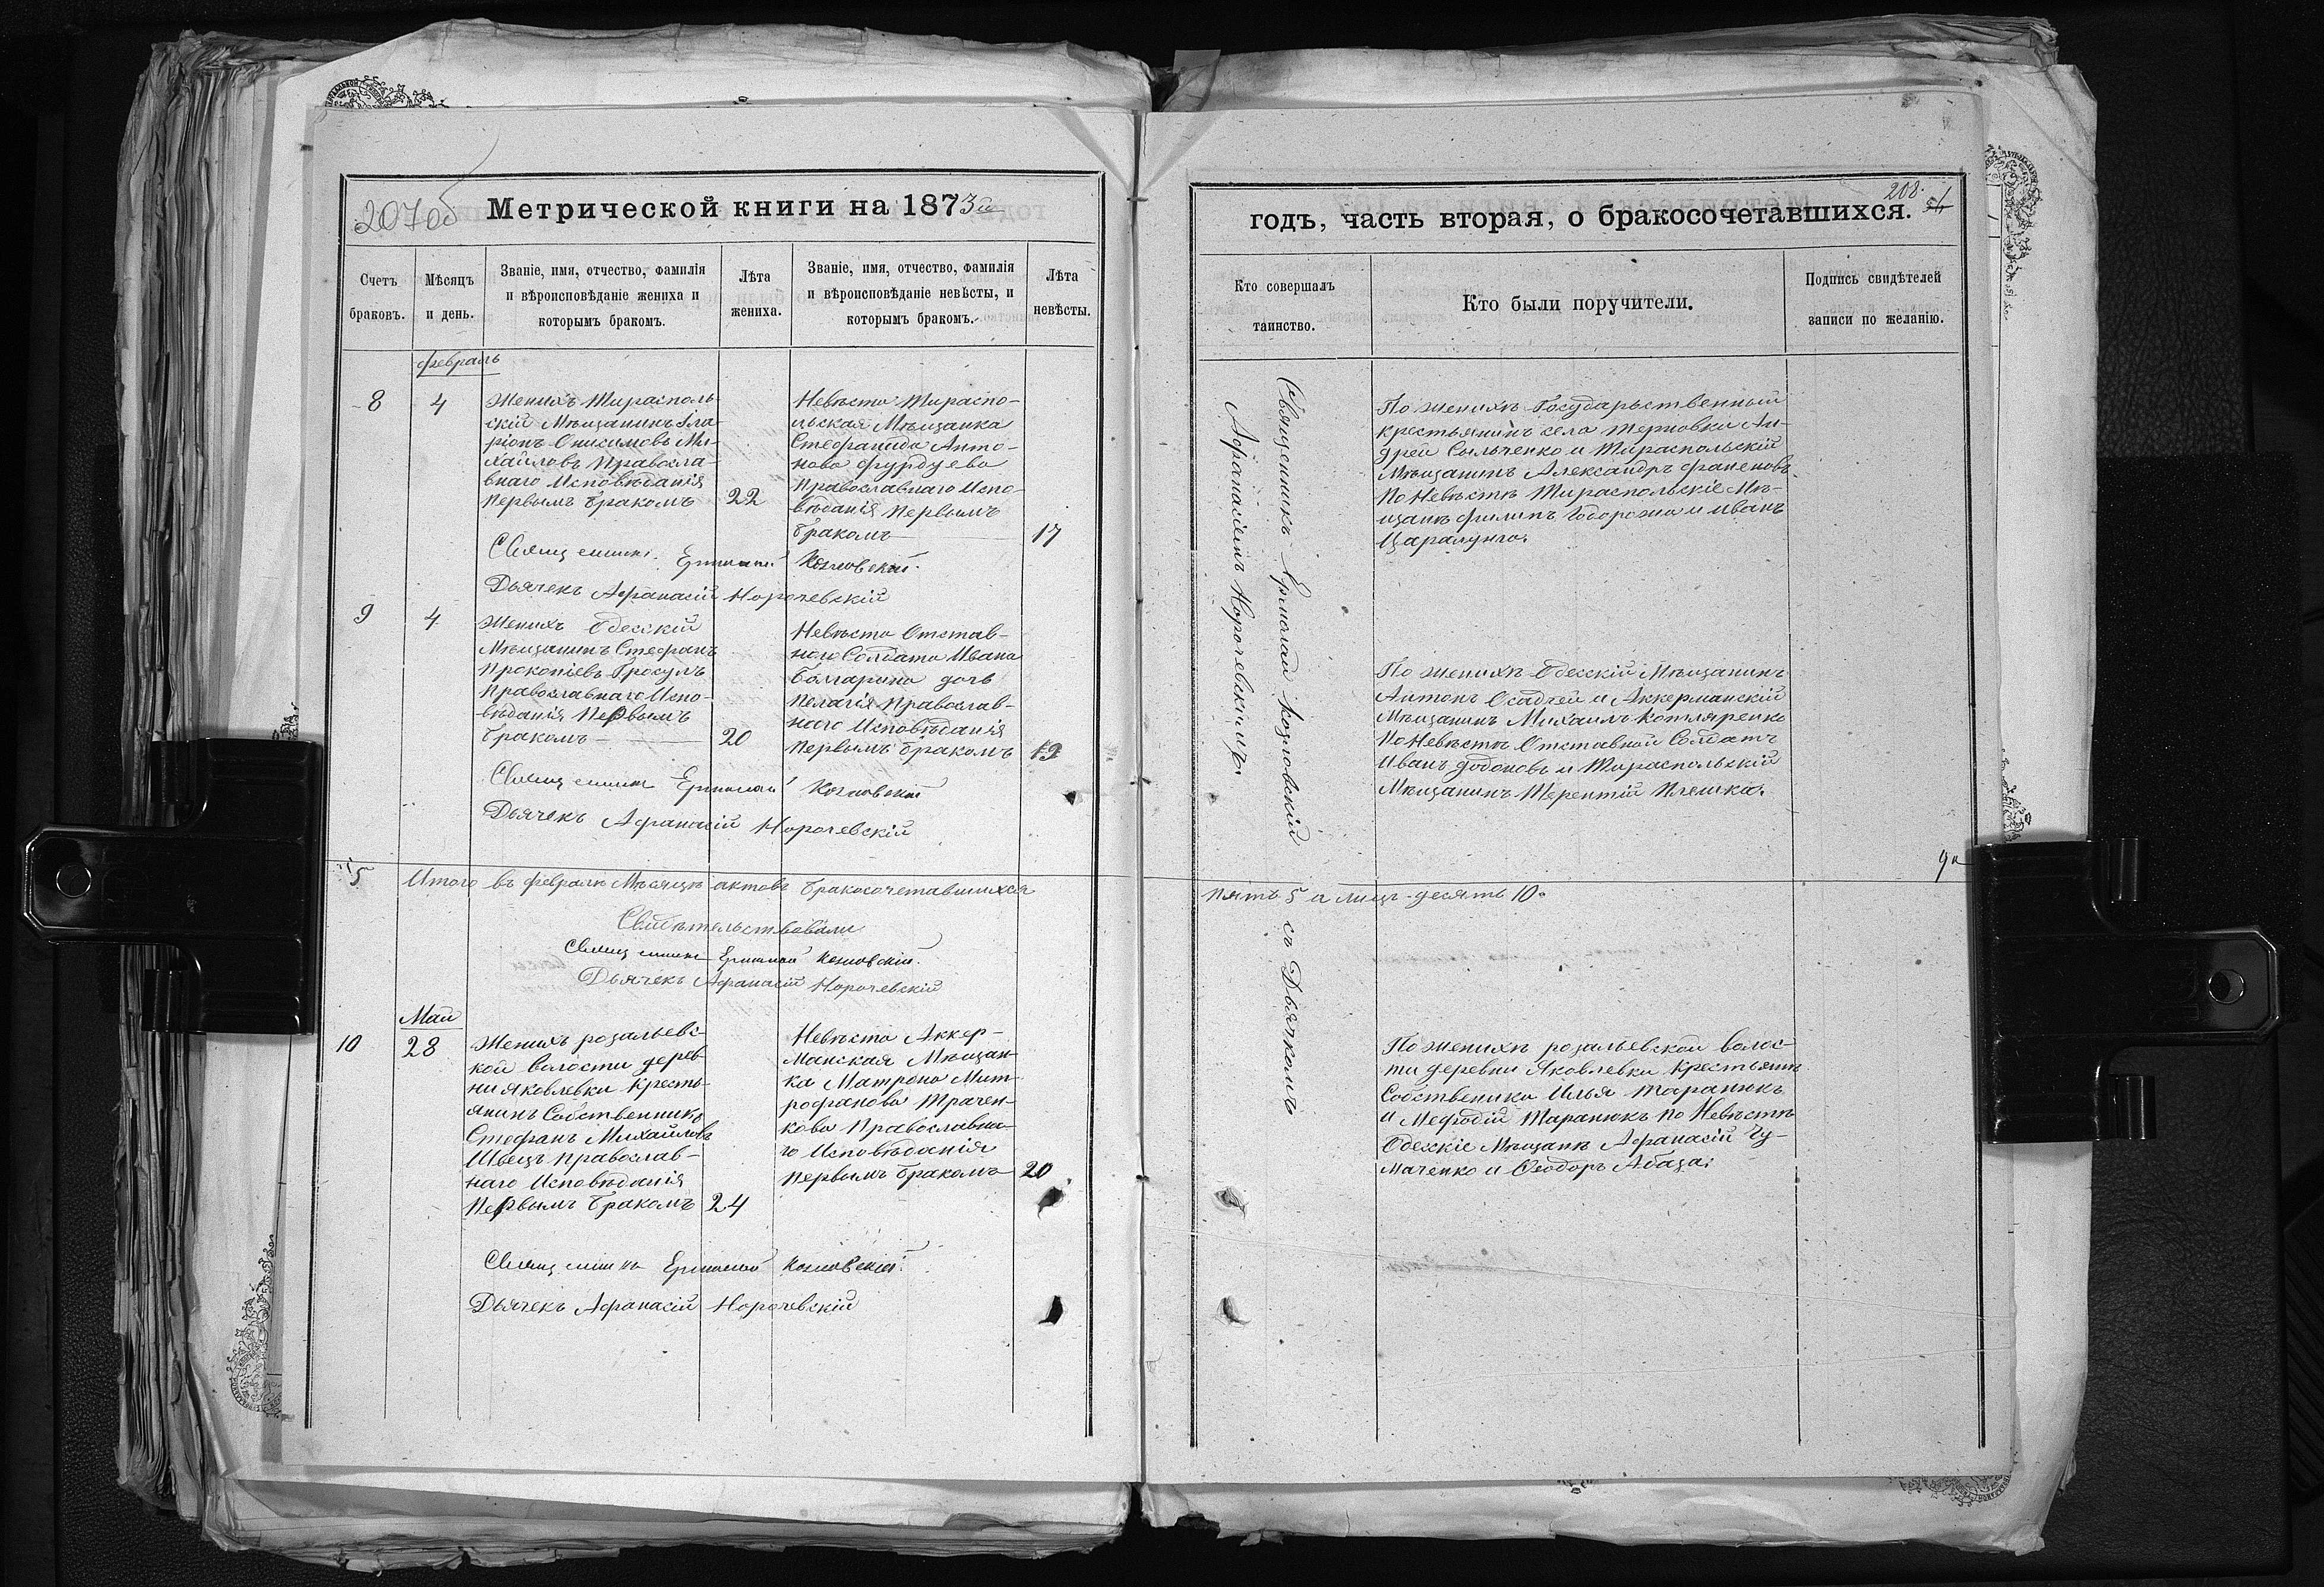 207об
Метрической книги на 1873й
Счетъ браковъ.
Мѣсяцъ и день.
Званіе, имя, отчество, фамилія
и вѣроисповѣданіе жениха и
которымъ бракомъ.
Лѣта жениха.
Званіе, имя, отчество, фамилія
и вѣроисповѣданіе невѣсты, и
которымъ бракомъ.
Лѣта невѣсты.
февраль
8
4
Женихъ Тирасполь-
скій Мѣщанинъ Ила-
ріонъ Онисимовъ Ми-
хайловъ Правосла-
внаго Исповѣданія
Первымъ бракомъ
22
Невѣста Тираспо-
льская Мѣщанка
Стефанида Анто-
нова Фурдуева
Православнаго Испо-
вѣданія Первымъ
бракомъ
17
Священникъ Ермолай Козловскій.
Дьячекъ Афанасій Норочевскій
9
4
Женихъ Одесскій
Мѣщанинъ Стефанъ
Прокопіевъ Гросулъ
Православнаго Испо-
вѣданія Первымъ
бракомъ
20
Невѣста Отстав-
наго Солдата Ивана
Болгарина дочь
Пелагія Православ-
наго Исповѣданія
Первымъ бракомъ
19
Священникъ Ермолай Козловскій
Дьячекъ Афанасій Норочевскій
5
Итого въ февралѣ Мѣсяцѣ актовъ бракосочетавшихся
Свидѣтельствовали
Священникъ Ермолай Козловскій.
Дьячекъ Афанасій Норочевскій
Май
10
28
Женихъ розальевс-
кой волости дерев-
ни Яковлевки Кресть-
янинъ Собственникъ
Стефанъ Михайловъ
Швецъ православ-
наго Исповѣданія
Первымъ бракомъ
24
Невѣста Аккер-
манская Мѣщан-
ка Матрона Мит-
рофанова Трачен-
кова Православна-
го Исповѣданія
Первымъ бракомъ
20
Священникъ Ермолай Козловскій.
Дьячекъ Афанасій Норочевскій
208.
годъ, часть вторая, о бракосочетавшихся.
Кто совершалъ таинство.
Кто были поручители.
Подпись свидѣтелей
записи по желанію.
Священникъ Ермолай Козловскій съ Дьячкомъ
Афанасіемъ Норочевскимъ.
По женихѣ Государственный
крестьянинъ села Терновки Ан-
дрей Сыльченко и Тираспольскій
Мѣщанинъ Александръ
По Невѣстѣ Тираспольскіе Мѣ-
щане Филипъ Годорожа и Иванъ
Царалунга.
По женихѣ Одесскій Мѣщанинъ
Антонъ Осадчей и Аккерманскій
Мѣщанинъ Михаилъ Котляренко
По Невѣстѣ Отставной Солдатъ
Иванъ Додоновъ и Тираспольскій
Мѣщанинъ Терентій Плешка.
пять 5 а лицъ десять 10.
По женихѣ розальевской волос-
ти деревни Яковлевки Крестьяне
Собственики Илья Таранюкъ
и Мефодій Таранюкъ по Невѣстѣ
Одесскіе Мѣщане Афанасій Чу-
маченко и Феодоръ Абаза.